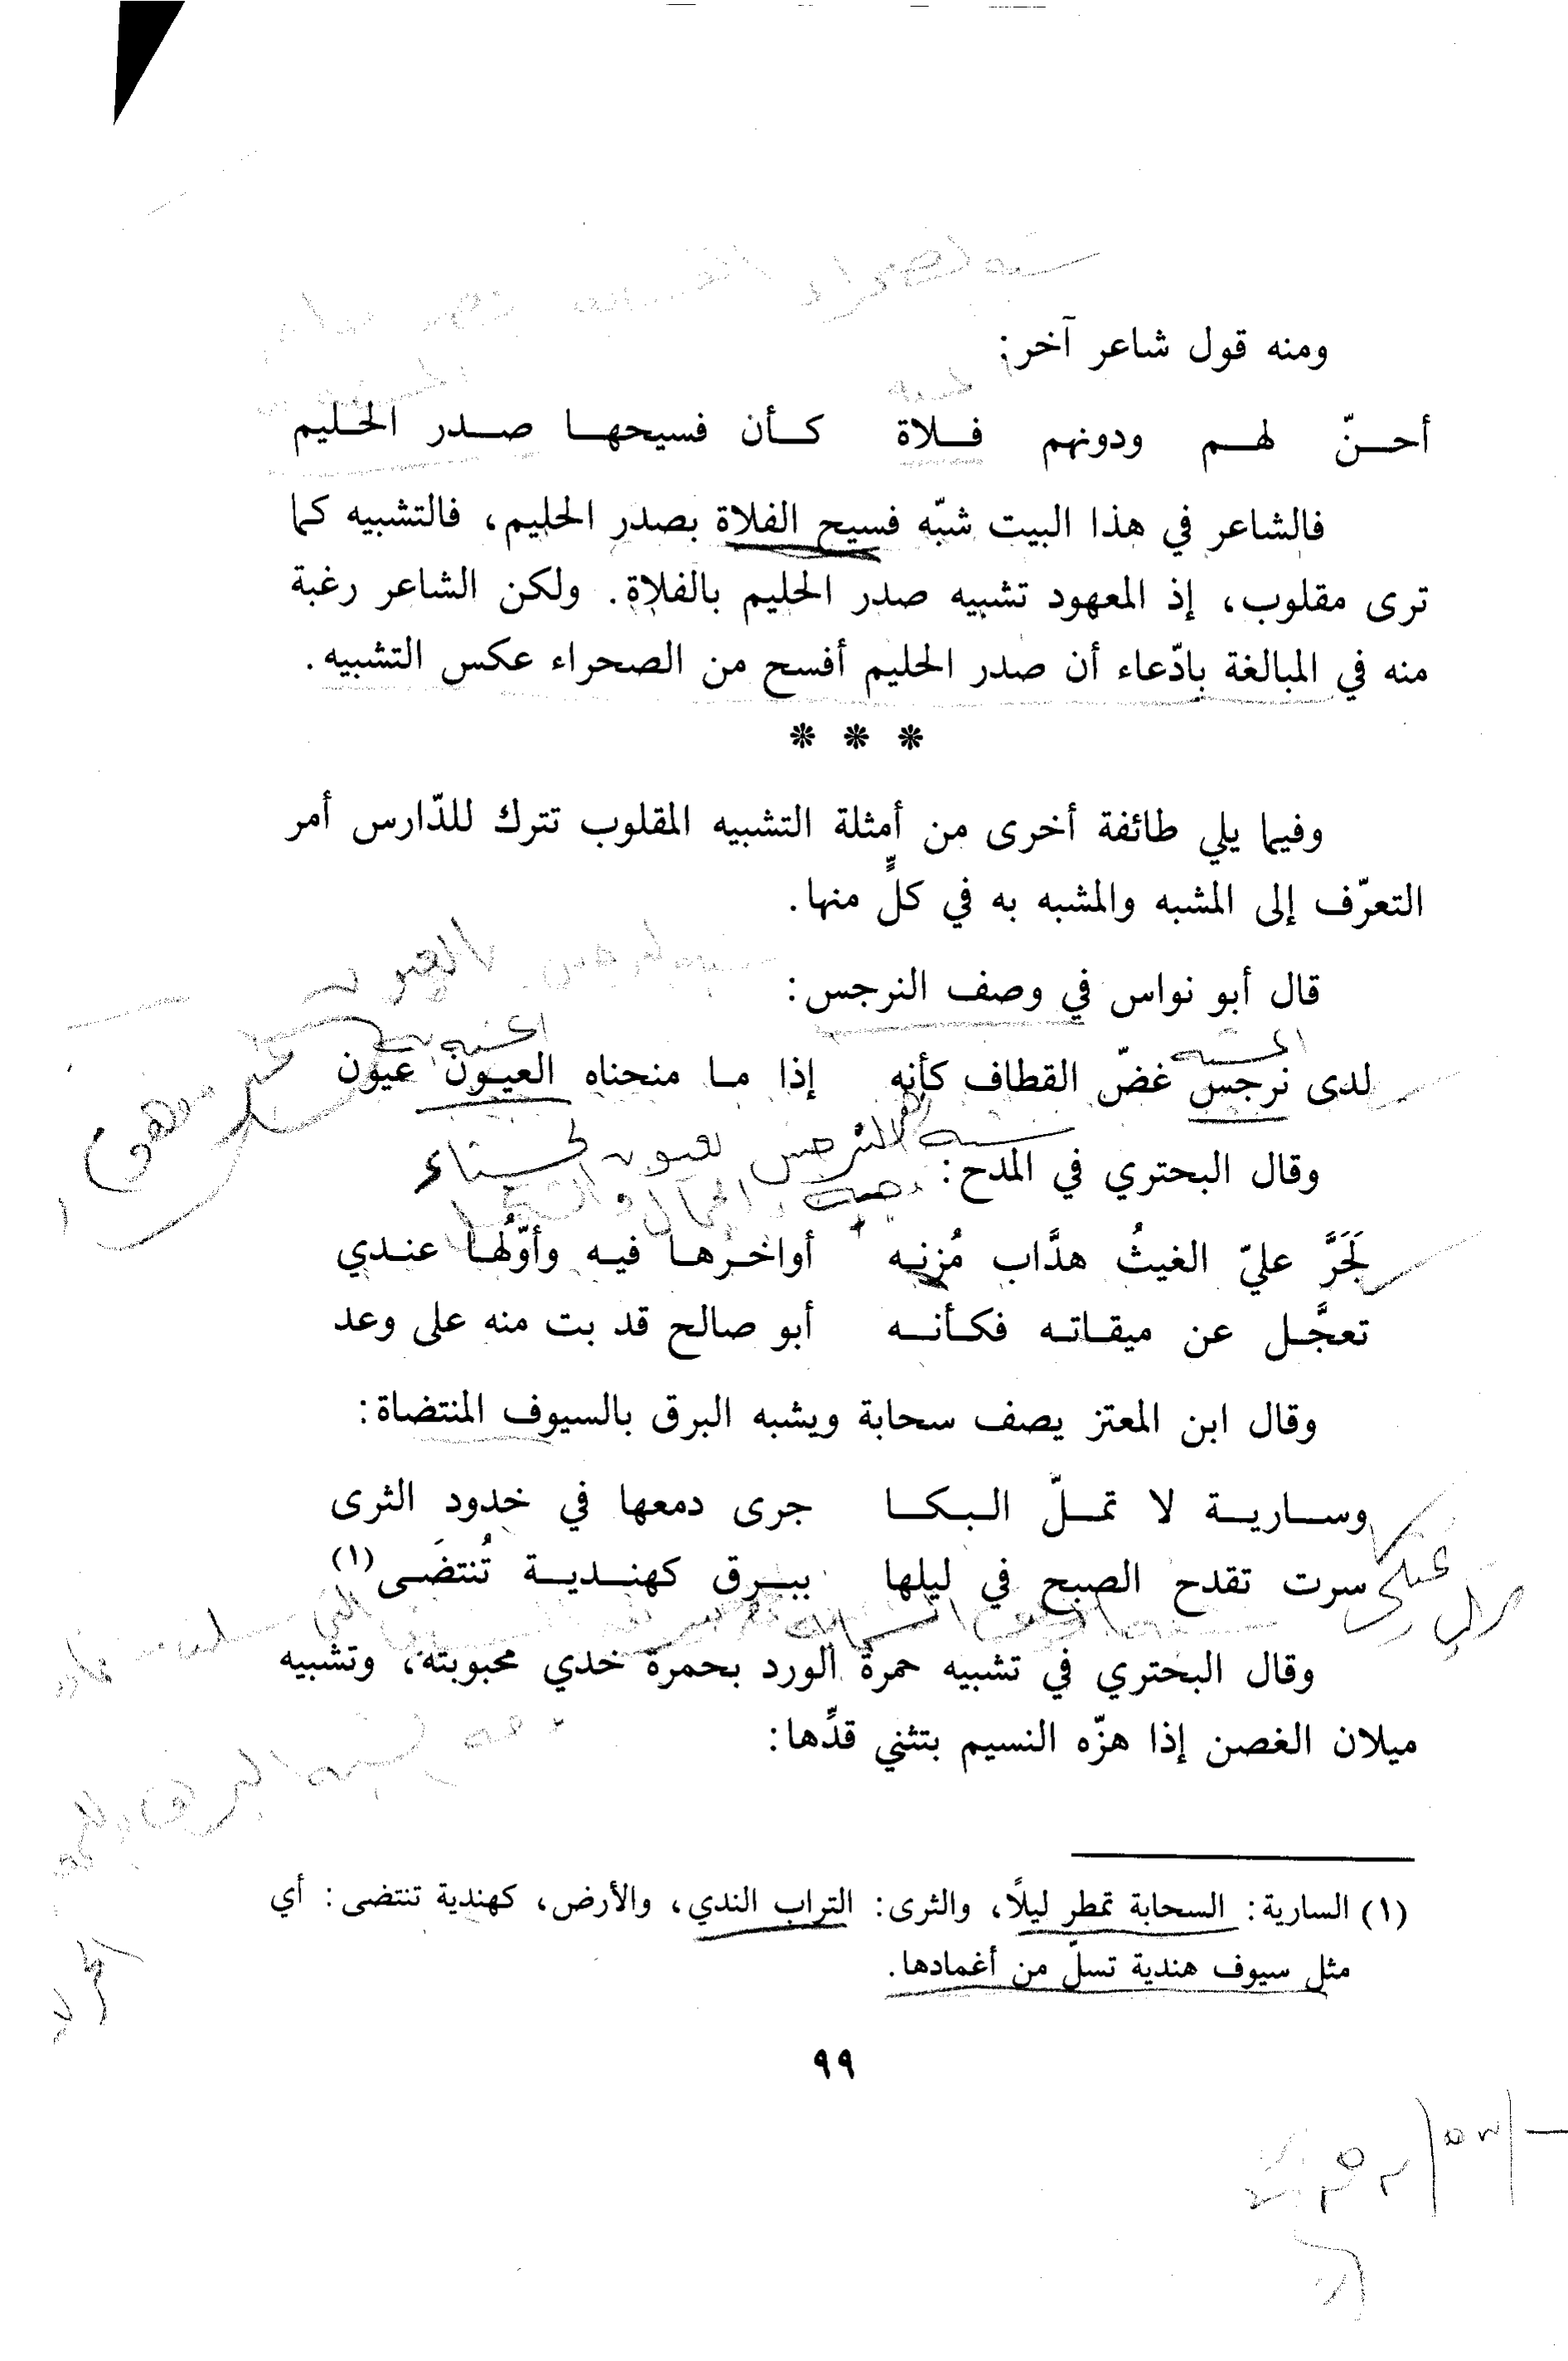 ومنه قول شاعر آخر:
أحــنّ لهــم ودونهم فــلاة كــأن فسيحهــا صــدر الحليم
فالشاعر في هذا البيت شبّه فسيح الفلاة بصدر الحليم، فالتشبيه كما
ترى مقلوب، إذ المعهود تشبيه صدر الحليم بالفلاة. ولكن الشاعر رغبة
منه في المبالغة بادّعاء أن صدر الحليم أفسح من الصحراء عكس التشبيه.
* * *
وفيما يلي طائفة أخرى من أمثلة التشبيه المقلوب تترك للدّارس أمر
التعرّف إلى المشبه والمشبه به في كلٍّ منها.
العيون
قال أبو نواس في وصف النرجس:
المشبه
لدى نرجس غضّ القطاف كأنه إذا مــا منحناه العيــون عيون
شبه النرجس بعيون الحسناء
وقال البحتري في المدح:
لَجَرَّ عليّ الغيثُ هدَّاب مُزنِه أواخرُهـا فيـه وأوّلُهـا عنـدي
تعجَّـل عن ميقـاتـه فكـأنــه أبو صالح قد بت منه على وعد
وقال ابن المعتز يصف سحابة ويشبه البرق بالسيوف المنتضاة:
وســاريــة لا تمــلّ البـكــا جرى دمعها في خدود الثرى
سرت تقدح الصبح في ليلها ببــرق كهنــديــة تُنتضَــى(١)
وقال البحتري في تشبيه حمرة الورد بحمرة خدي محبوبته، وتشبيه
ميلان الغصن إذا هزّه النسيم بتثني قدِّها:
(١) السارية: السحابة تمطر ليلًا، والثرى: التراب الندي، والأرض، كهندية تنتضى: أي
مثل سيوف هندية تسلّ من أغمادها.
٩٩